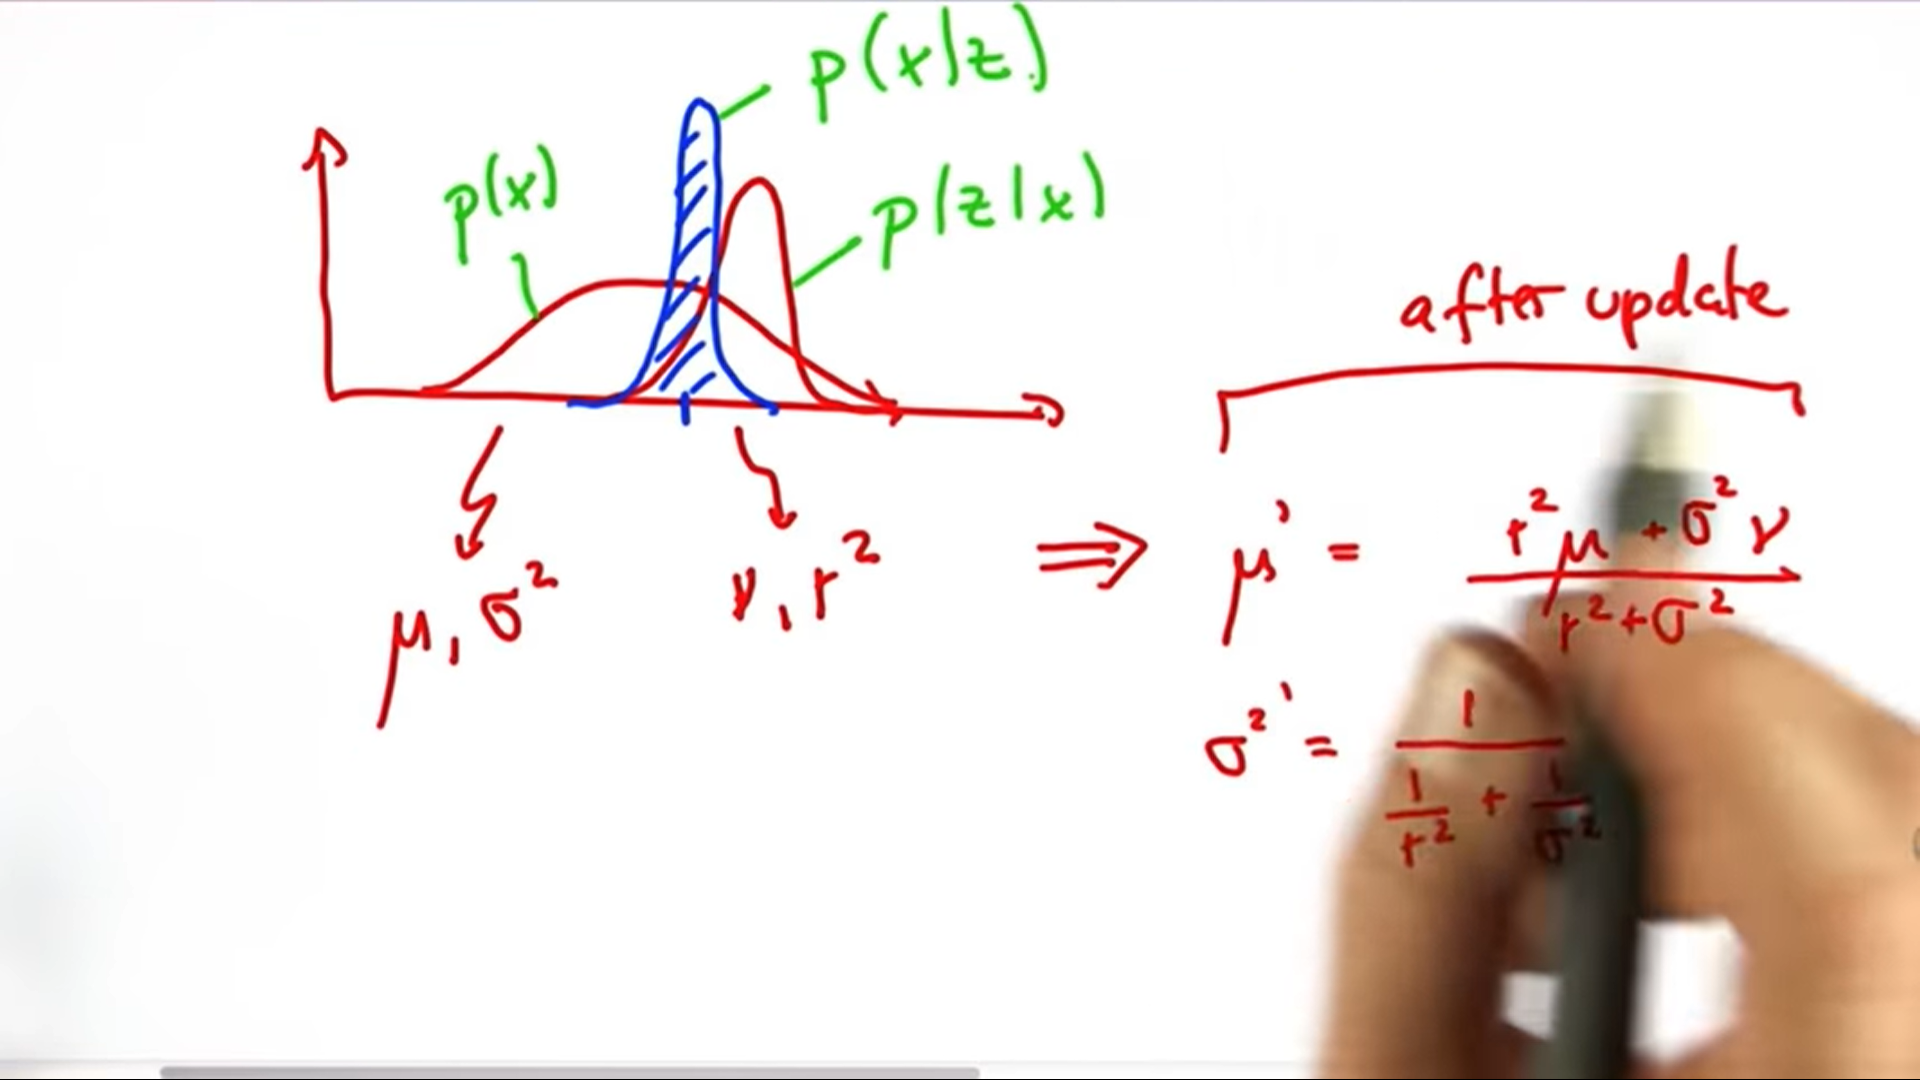 p(x|z)
p(x)
p(z|x)
after update
μ, σ²
ν, r²
⇒
μ' = r²μ + σ²ν / r² + σ²
σ²' = 1 / 1/r² + 1/σ²